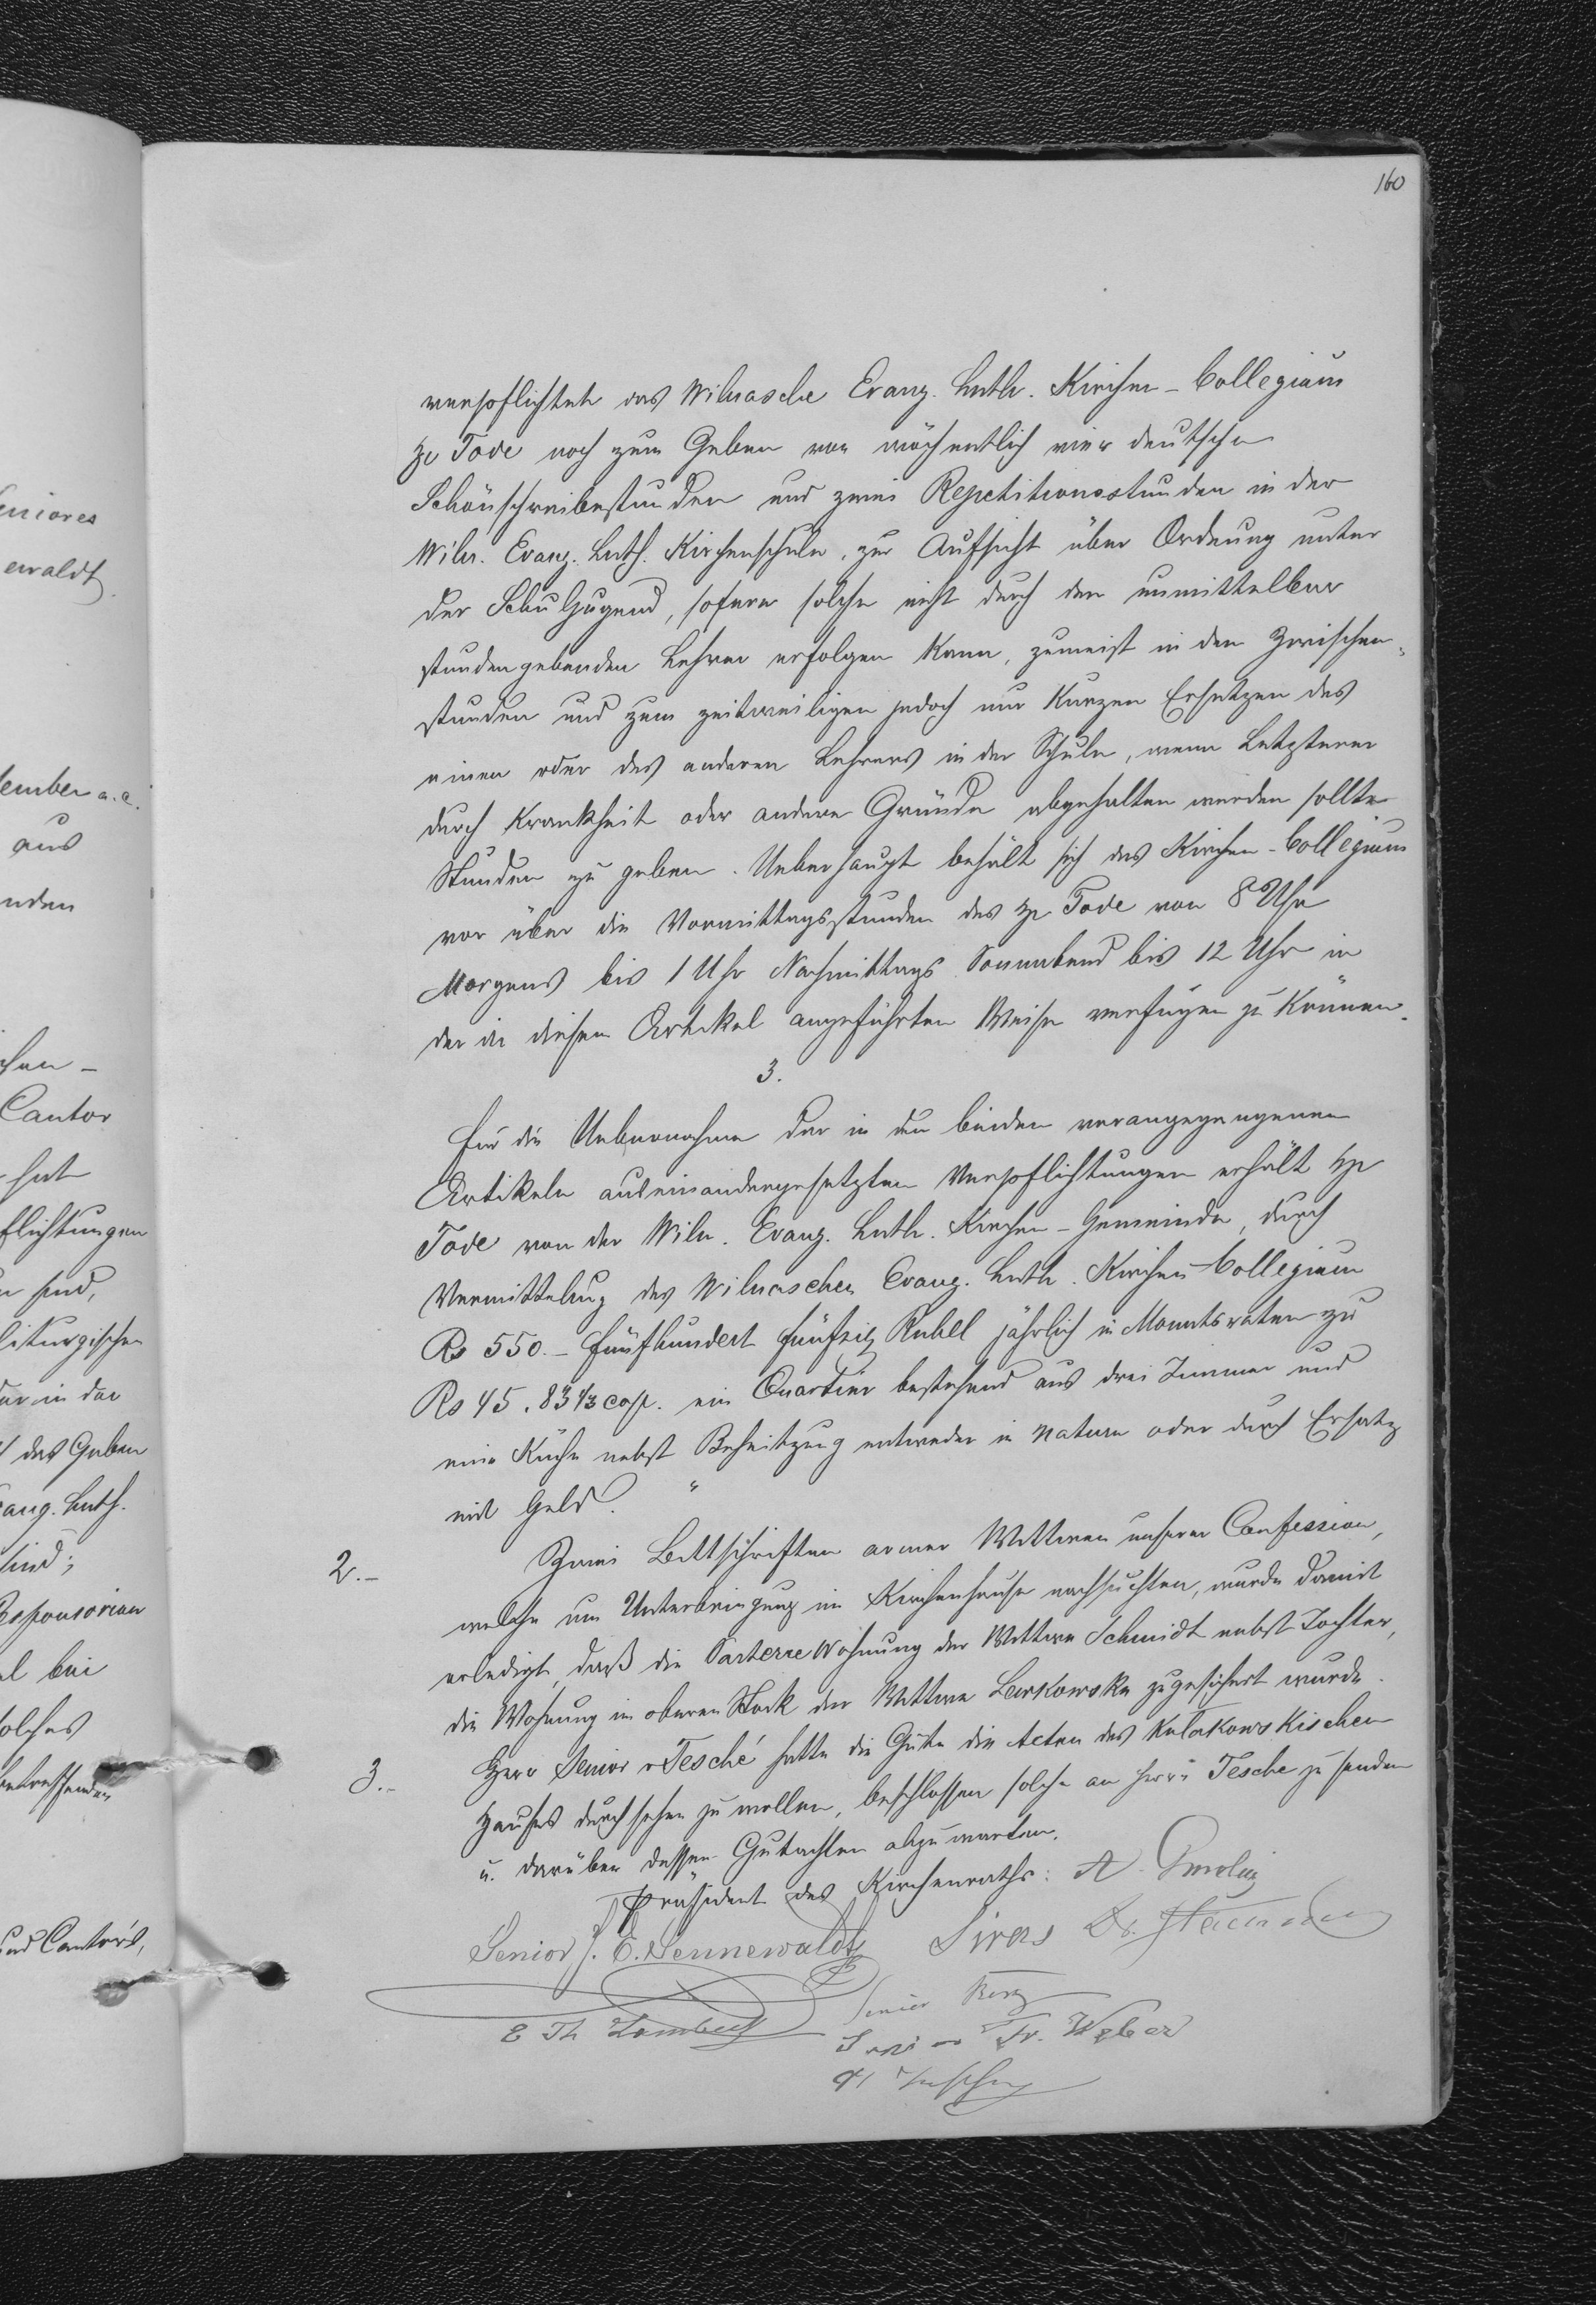 160
verpflichtete das Wilnasche Evang. Luth. Kirchen-Collegium
Hr Tode noch zum Geben von wöchentlich vier deutsche
Schönschreibestunden und zwei Repetitionsstunden in der
Wiln. Evang. Luth. Kirchenschule, zur Aufsicht über Ordnung unter
der Schuljugend, sofern solche nicht durch den unmittelbar
stundengebenden Lehrer erfolgen kann, zumeist in den Zwischen-
stunden und zum zeitweiligen jedoch nur kurzen Ersetzen des
einen oder des anderen Lehrers in der Schule, wenn Letzterer
durch Krankheit oder andere Gründe abgehalten werden sollte
Stunden zu geben. Ueberhaupt behält sich das Kirchen-Collegium
vor über die Vormittagsstunden des Hr Tode von 8 Uhr
Morgens bis 1 Uhr Nachmittags Sonnabend bis 12 Uhr in
der in diesem Artikel angeführten Weise verfügen zu können.
3.
Für die Uebernahme der in den beiden vorangegangenen
Artikeln auseinandergesetzten Verpflichtungen erhält Hr
Tode von der Wiln. Evang. Luth. Kirchen-Gemeinde, durch
Vermittelung des Wilnaschen Evang. Luth. Kirchen-Collegium
Rs 550.- fünfhundert fünfzig Rubel jährlich in Monatsraten zu
Rs 45. 83 1/3 cop. ein Quartier bestehend aus drei Zimmer und
eine Küche nebst Beheitzung entweder in natura oder durch Ersatz
mit Geld. "
2.- Zwei Bittschriften armer Wittwen unserer Confession,
welche um Unterbringung im Kirchenhause nachsuchten, wurde damit
erledigt, daß die Parterre Wohnung der Wittwe Schmidt nebst Tochter,
die Wohnung im oberen Stock der Wittwe Larkowska zugesichert wurde.
3.- Herr Senior v Tesché hatte die Güte die Acten des Kulakowskischen
Hauses durchsehen zu wollen, beschlossen solche an Herrn Tesche zu senden
u. darüber dessen Gutachten abzuwarten.
Präsident des Kirchenraths: A.
Senior J. E. Sennewaldt Dr.
E Th Lambert Senior
Senior Fr. Weber